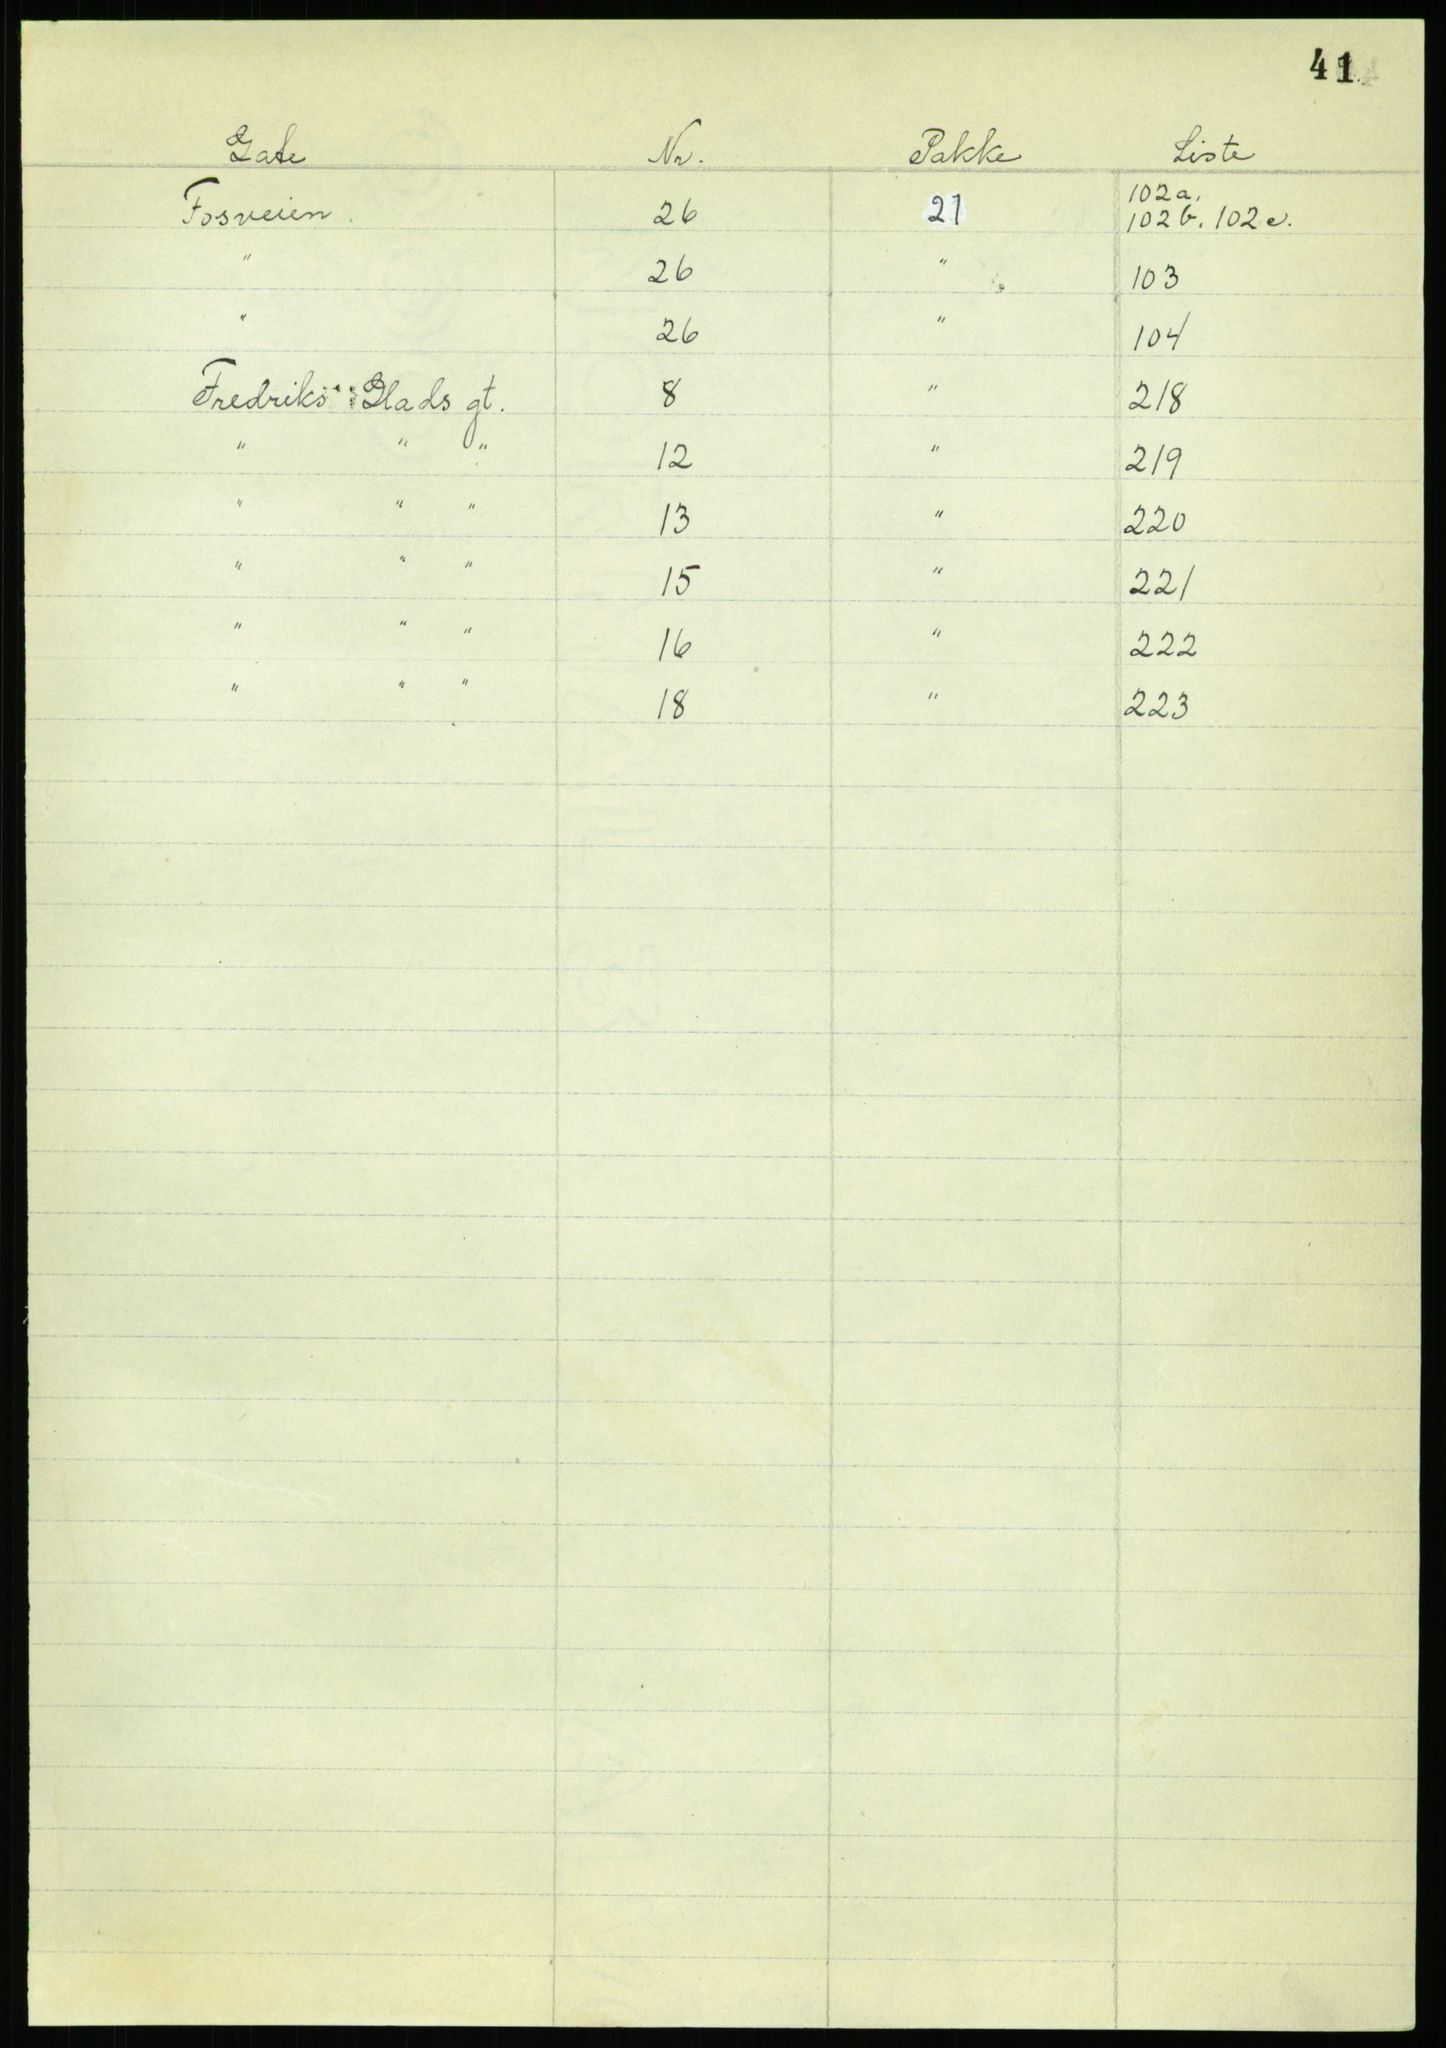 41
Gate Nr. Pakke Liste
102a.
Fosveien 26 21 102b. 102c.
" 26 " 103
" 26 " 104
Fredriks Glads gt. 8 " 218
" " " 12 " 219
" " " 13 " 220
" " " 15 " 221
" " " 16 " 222
" " " 18 " 223